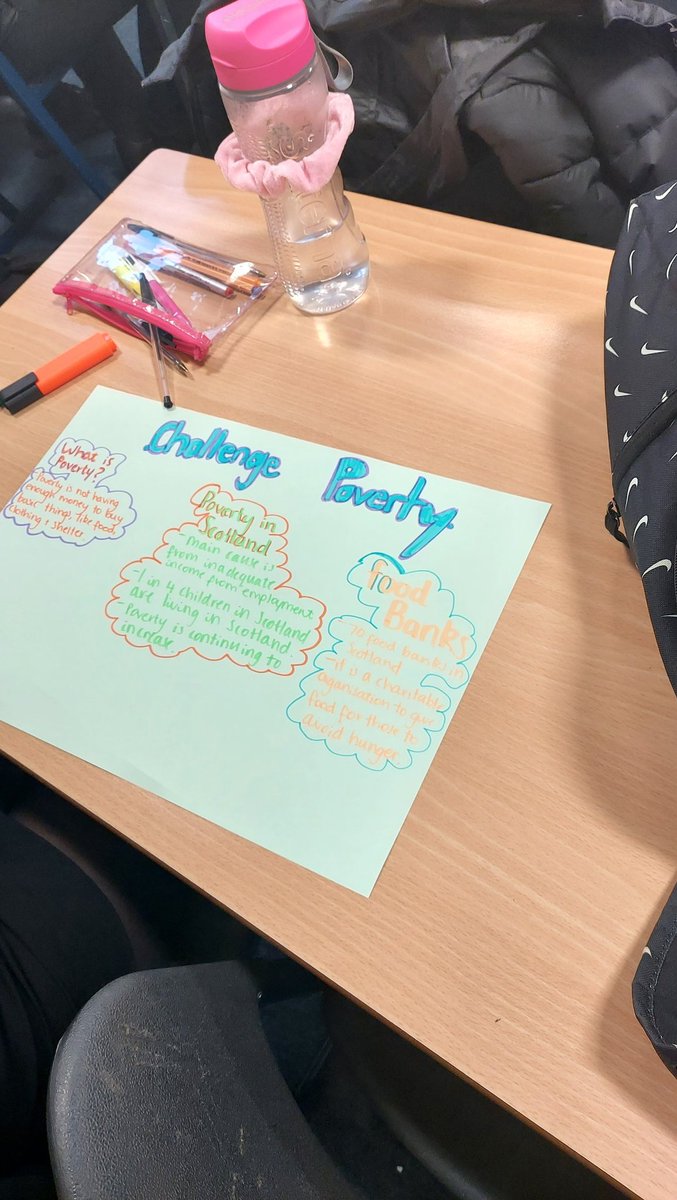 Challenge Poverty
What is
Poverty?
Poverty is not having
enough money to buy
basic things like food,
clothing + shelter
Poverty in
Scotland
- main cause is
from inadequate
income from employment
- 1 in 4 children in Scotland
are living in Scotland.
- Poverty is continuing to
increase.
food
Banks
- 70 food banks in
Scotland
- it is a charitable
aganisation to give
food for those to
avoid hunger